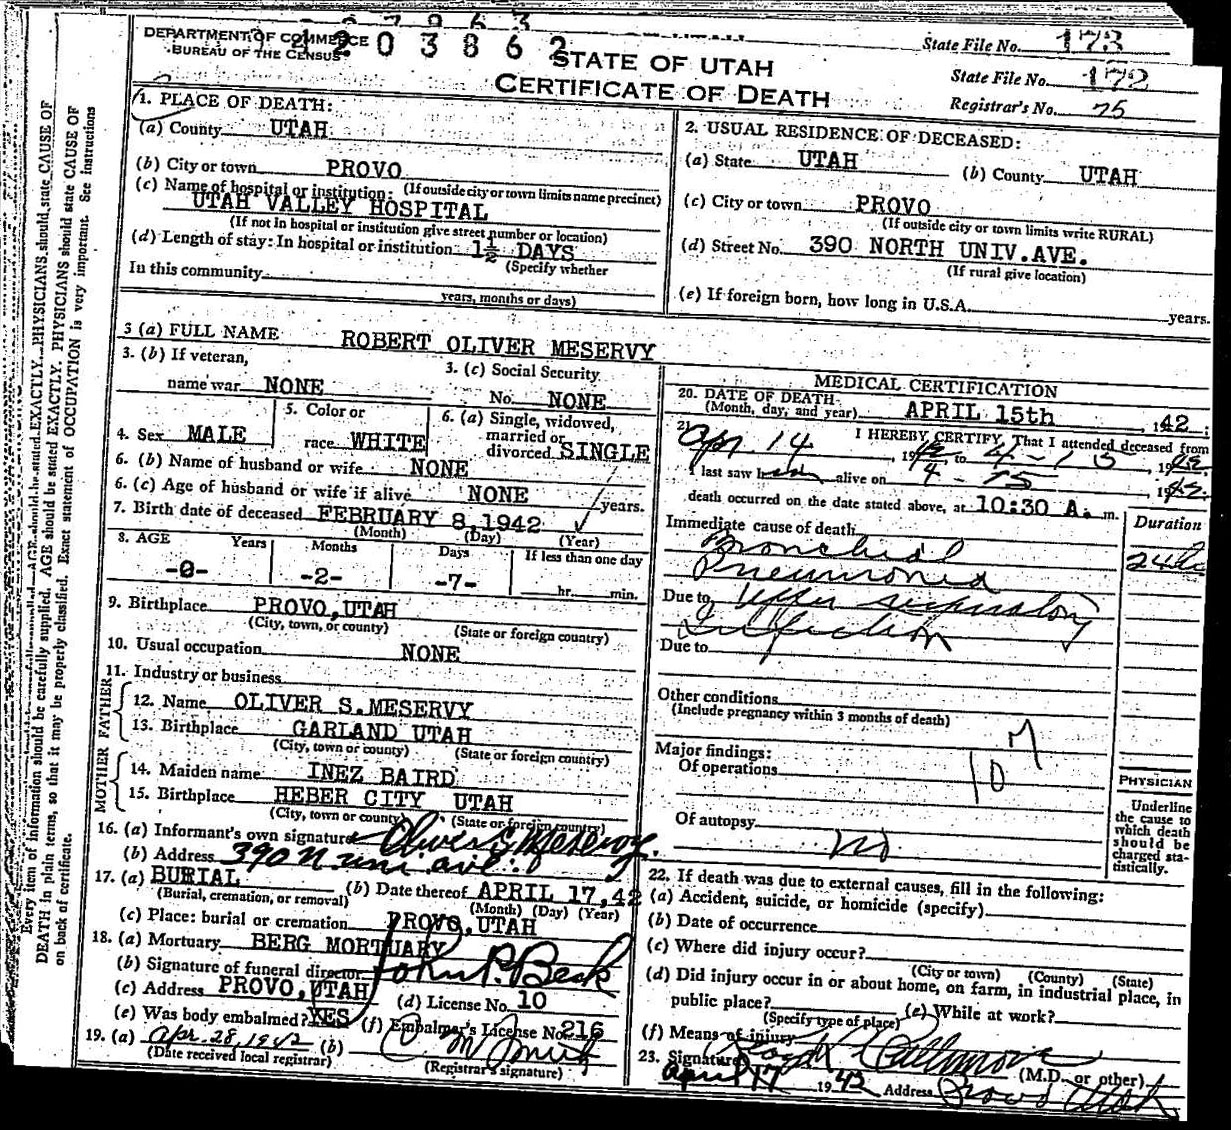 DEPARTMENT OF COMMERCE
BUREAU OF THE CENSUS
203862
STATE OF UTAH
CERTIFICATE OF DEATH
State File No. 173
State File No. 172
Registrar's No. 75
1. PLACE OF DEATH:
(a) County UTAH
(b) City or town PROVO
(If outside city or town limits name precinct)
(c) Name of hospital or institution:
UTAH VALLEY HOSPITAL
(If not in hospital or institution give street number or location)
(d) Length of stay: In hospital or institution 1½ DAYS
(Specify whether
In this community
years, months or days)
2. USUAL RESIDENCE OF DECEASED:
(a) State UTAH (b) County UTAH
(c) City or town PROVO
(If outside city or town limits write RURAL)
(d) Street No. 390 NORTH UNIV. AVE.
(If rural give location)
(e) If foreign born, how long in U.S.A. years.
3 (a) FULL NAME ROBERT OLIVER MESERVY
3. (b) If veteran,
name war NONE
3. (c) Social Security
No. NONE
4. Sex MALE
5. Color or
race WHITE
6. (a) Single, widowed,
married or
divorced SINGLE
6. (b) Name of husband or wife NONE
6. (c) Age of husband or wife if alive NONE years.
7. Birth date of deceased FEBRUARY 8, 1942
(Month) (Day) (Year)
8. AGE Years Months Days If less than one day
-0- -2- -7- hr. min.
9. Birthplace PROVO, UTAH
(City, town, or county) (State or foreign country)
10. Usual occupation NONE
11. Industry or business
FATHER
12. Name OLIVER S. MESERVY
13. Birthplace GARLAND UTAH
(City, town or county) (State or foreign country)
MOTHER
14. Maiden name INEZ BAIRD
15. Birthplace HEBER CITY UTAH
(City, town or county) (State or foreign country)
16. (a) Informant's own signature Oliver S Meservy.
(b) Address 390 N. uni. ave.
17. (a) BURIAL (b) Date thereof APRIL 17, 42
(Burial, cremation, or removal) (Month) (Day) (Year)
(c) Place: burial or cremation PROVO, UTAH
18. (a) Mortuary BERG MORTUARY
(b) Signature of funeral director John P. Beck
(c) Address PROVO, UTAH (d) License No. 10
(e) Was body embalmed? YES (f) Embalmer's License No. 216
19. (a) Apr. 28, 1942 (b)
(Date received local registrar) (Registrar's signature)
MEDICAL CERTIFICATION
20. DATE OF DEATH
(Month, day, and year) APRIL 15th, 1942:
21. I HEREBY CERTIFY, That I attended deceased from
Apr. 14, 1942, to 4-15, 1942.
I last saw him alive on 4-15, 1942.
death occurred on the date stated above, at 10:30 A. m.
Duration
Immediate cause of death
Bronchial
Pneumonia
Due to Upper respiratory
Infection
Due to
Other conditions
(Include pregnancy within 3 months of death)
Major findings:
Of operations
Of autopsy no
PHYSICIAN
Underline
the cause to
which death
should be
charged sta-
tistically.
22. If death was due to external causes, fill in the following:
(a) Accident, suicide, or homicide (specify)
(b) Date of occurrence
(c) Where did injury occur?
(City or town) (County) (State)
(d) Did injury occur in or about home, on farm, in industrial place, in
public place? (e) While at work?
(Specify type of place)
(f) Means of injury
23. Signature (M.D. or other)
April 17 1942 Address Provo Utah
Every item of information should be carefully supplied. AGE should be stated EXACTLY. PHYSICIANS should state CAUSE OF
DEATH in plain terms, so that it may be properly classified. Exact statement of OCCUPATION is very important. See instructions
on back of certificate.